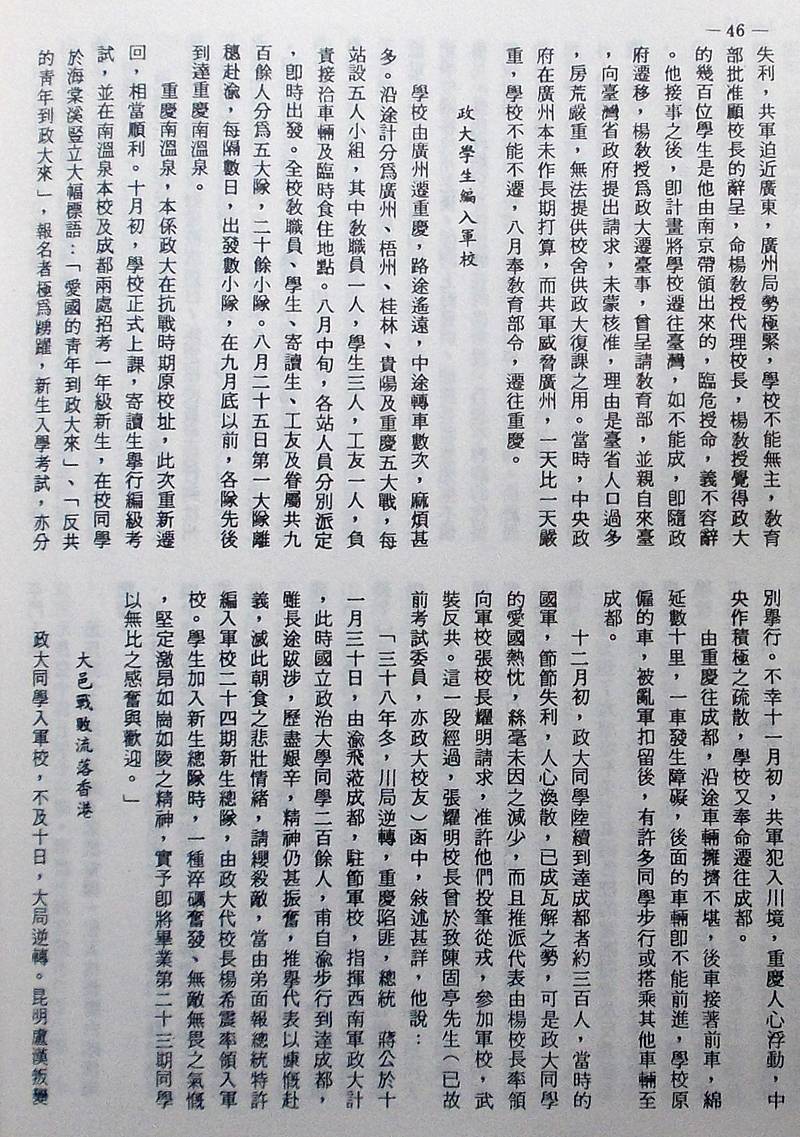 — 46 —
失利，共軍迫近廣東，廣州局勢極緊，學校不能無主，教育
部批准顧校長的辭呈，命楊教授代理校長，楊教授覺得政大
的幾百位學生是他由南京帶領出來的，臨危授命，義不容辭
。他接事之後，卽計畫將學校遷往臺灣，如不能成，卽隨政
府遷移，楊教授爲政大遷臺事，曾呈請教育部，並親自來臺
，向臺灣省政府提出請求，未蒙核准，理由是臺省人口過多
，房荒嚴重，無法提供校舍供政大復課之用。當時，中央政
府在廣州本未作長期打算，而共軍威脅廣州，一天比一天嚴
重，學校不能不遷，八月奉教育部令，遷往重慶。
政大學生編入軍校
學校由廣州遷重慶，路途遙遠，中途轉車數次，麻煩甚
多。沿途計分爲廣州、梧州、桂林、貴陽及重慶五大戰，每
站設五人小組，其中教職員一人，學生三人，工友一人，負
責接洽車輛及臨時食住地點。八月中旬，各站人員分別派定
，卽時出發。全校教職員、學生、寄讀生、工友及眷屬共九
百餘人分爲五大隊，二十餘小隊。八月二十五日第一大隊離
穗赴渝，每隔數日，出發數小隊，在九月底以前，各隊先後
到達重慶南溫泉。
重慶南溫泉，本係政大在抗戰時期原校址，此次重新遷
回，相當順利。十月初，學校正式上課，寄讀生舉行編級考
試，並在南溫泉本校及成都兩處招考一年級新生，在校同學
於海棠溪豎立大幅標語：「愛國的青年到政大來」、「反共
的青年到政大來」，報名者極爲踴躍，新生入學考試，亦分
別舉行。不幸十一月初，共軍犯入川境，重慶人心浮動，中
央作積極之疏散，學校又奉命遷往成都。
由重慶往成都，沿途車輛擁擠不堪，後車接著前車，綿
延數十里，一車發生障礙，後面的車輛卽不能前進，學校原
僱的車，被亂軍扣留後，有許多同學步行或搭乘其他車輛至
成都。
十二月初，政大同學陸續到達成都者約三百人，當時的
國軍，節節失利，人心渙散，已成瓦解之勢，可是政大同學
的愛國熱忱，絲毫未因之減少，而且推派代表由楊校長率領
向軍校張校長耀明請求，准許他們投筆從戎，參加軍校，武
裝反共。這一段經過，張耀明校長曾於致陳固亭先生（已故
前考試委員，亦政大校友）函中，敍述甚詳，他說：
「三十八年冬，川局逆轉，重慶陷匪，總統　蔣公於十
一月三十日，由渝飛蒞成都，駐節軍校，指揮西南軍政大計
，此時國立政治大學同學二百餘人，甫自渝步行到達成都，
雖長途跋涉，歷盡艱辛，精神仍甚振奮，推舉代表以慷慨赴
義，滅此朝食之悲壯情緒，請纓殺敵，當由弟面報總統特許
編入軍校二十四期新生總隊，由政大代校長楊希震率領入軍
校。學生加入新生總隊時，一種淬礪奮發、無敵無畏之氣慨
，堅定激昂如崗如陵之精神，實予卽將畢業第二十三期同學
以無比之感奮與歡迎。」
大邑戰敗流落香港
政大同學入軍校，不及十日，大局逆轉。昆明盧漢叛變